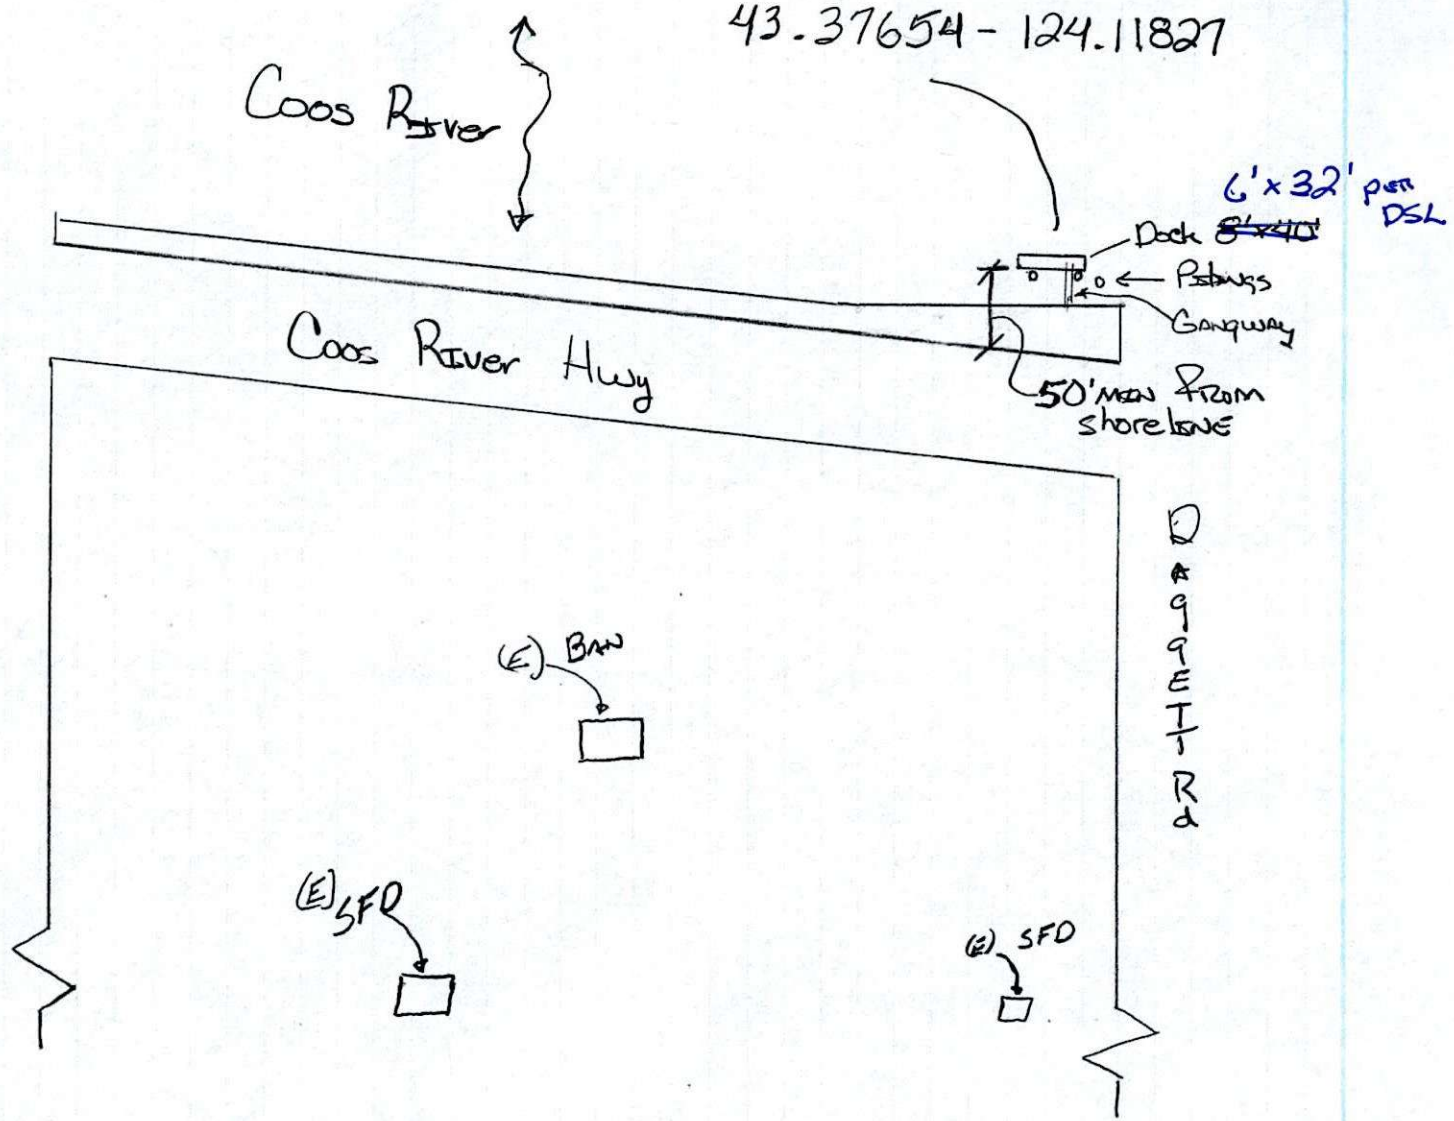 43.37654 - 124.11827
Coos River
6'x32' per
DSL
Dock 8'x40'
Pilings
Gangway
Coos River Hwy
50' min from
shoreline
Daggett Rd
(E) BAN
(E) SFD
(E) SFD